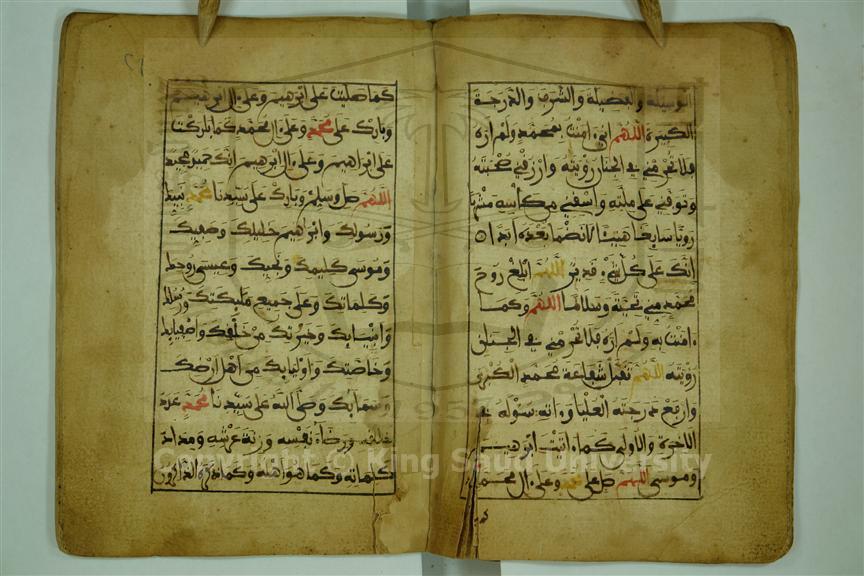 الوسيلة والفضيلة والشرف والدرجة
الكبيرة اللهم اني ءامنت بمحمد ولم اره
فلا تحرمني في الجنان رؤيته وارزقني صحبته
وتوفني على ملته واسقني من حوضه مشربا
رويا سايغا هنيئا لا نظما بعده ابدا
انك على كل شيء قدير اللهم ابلغ روح
محمد مني تحية وسلاما اللهم وكما
ءامنت به ولم اره فلا تحرمني في الجنان
رؤيته اللهم تقبل شفاعة محمد الكبرى
وارفع درجته العليا وءاته سوله في
الاخرة والاولى كما ءاتيت ابرهيم
وموسى اللهم صل على محمد وعلى ال محمد
كما صليت على ابرهيم وعلى ال ابرهيم
وبارك على محمد وعلى ال محمد كما باركت
على ابراهيم وعلى ال ابرهيم انك حميد مجيد
اللهم صل وسلم وبارك على سيدنا محمد نبيك
ورسولك وابرهيم خليلك وصفيك
وموسى كليمك ونجيك وعيسى روحك
وكلمتك وعلى جميع ملايكتك ورسلك
وانبيايك وخيرتك من خلقك واصفيايك
وخاصتك واوليايك من اهل ارضك
وسمايك وصلى الله على سيدنا محمد عدد
خلقه ورضاء نفسه وزنة عرشه ومداد
كلماته وكما هو اهله وكلما ذكره الذاكرون
Copyright © King Saud University
1957